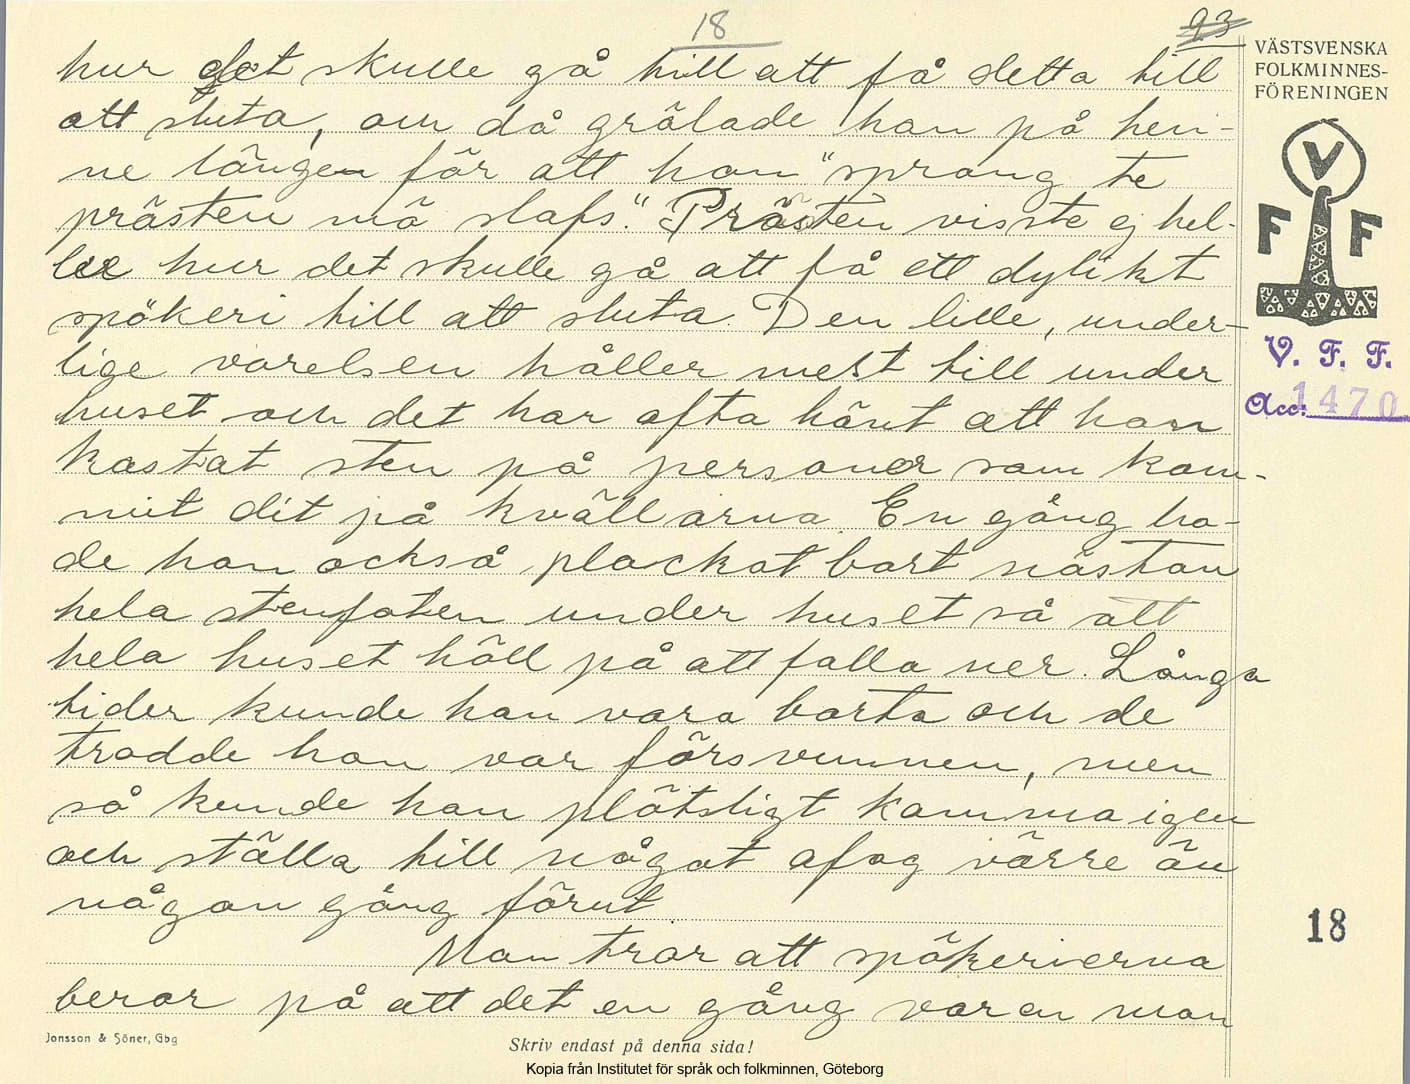 18
23
hur det skulle gå till att få detta till
att sluta, och då grälade han på hen-
ne länge för att hon "sprang te
prästen mä slafs". Prästen visste ej hel-
ler hur det skulle gå att få ett dylikt
spökeri till att sluta. Den lille, under-
lige varelsen håller mest till under
huset och det har ofta hänt att han
kastat sten på personer som kom-
mit dit på kvällarna. En gång ha-
de han också plockat bort nästan
hela stenfoten under huset så att
hela huset höll på att falla ner. Långa
tider kunde han vara borta och de
trodde han var försvunnen, men
så kunde han plötsligt komma igen
och ställa till något ofog värre än
någon gång förut.
Man tror att spökerierna
beror på att det en gång var en man
VÄSTSVENSKA
FOLKMINNES-
FÖRENINGEN
V
F F
V. F. F.
Acc: 1470
18
Jonsson & Söner, Gbg
Skriv endast på denna sida!
Kopia från Institutet för språk och folkminnen, Göteborg